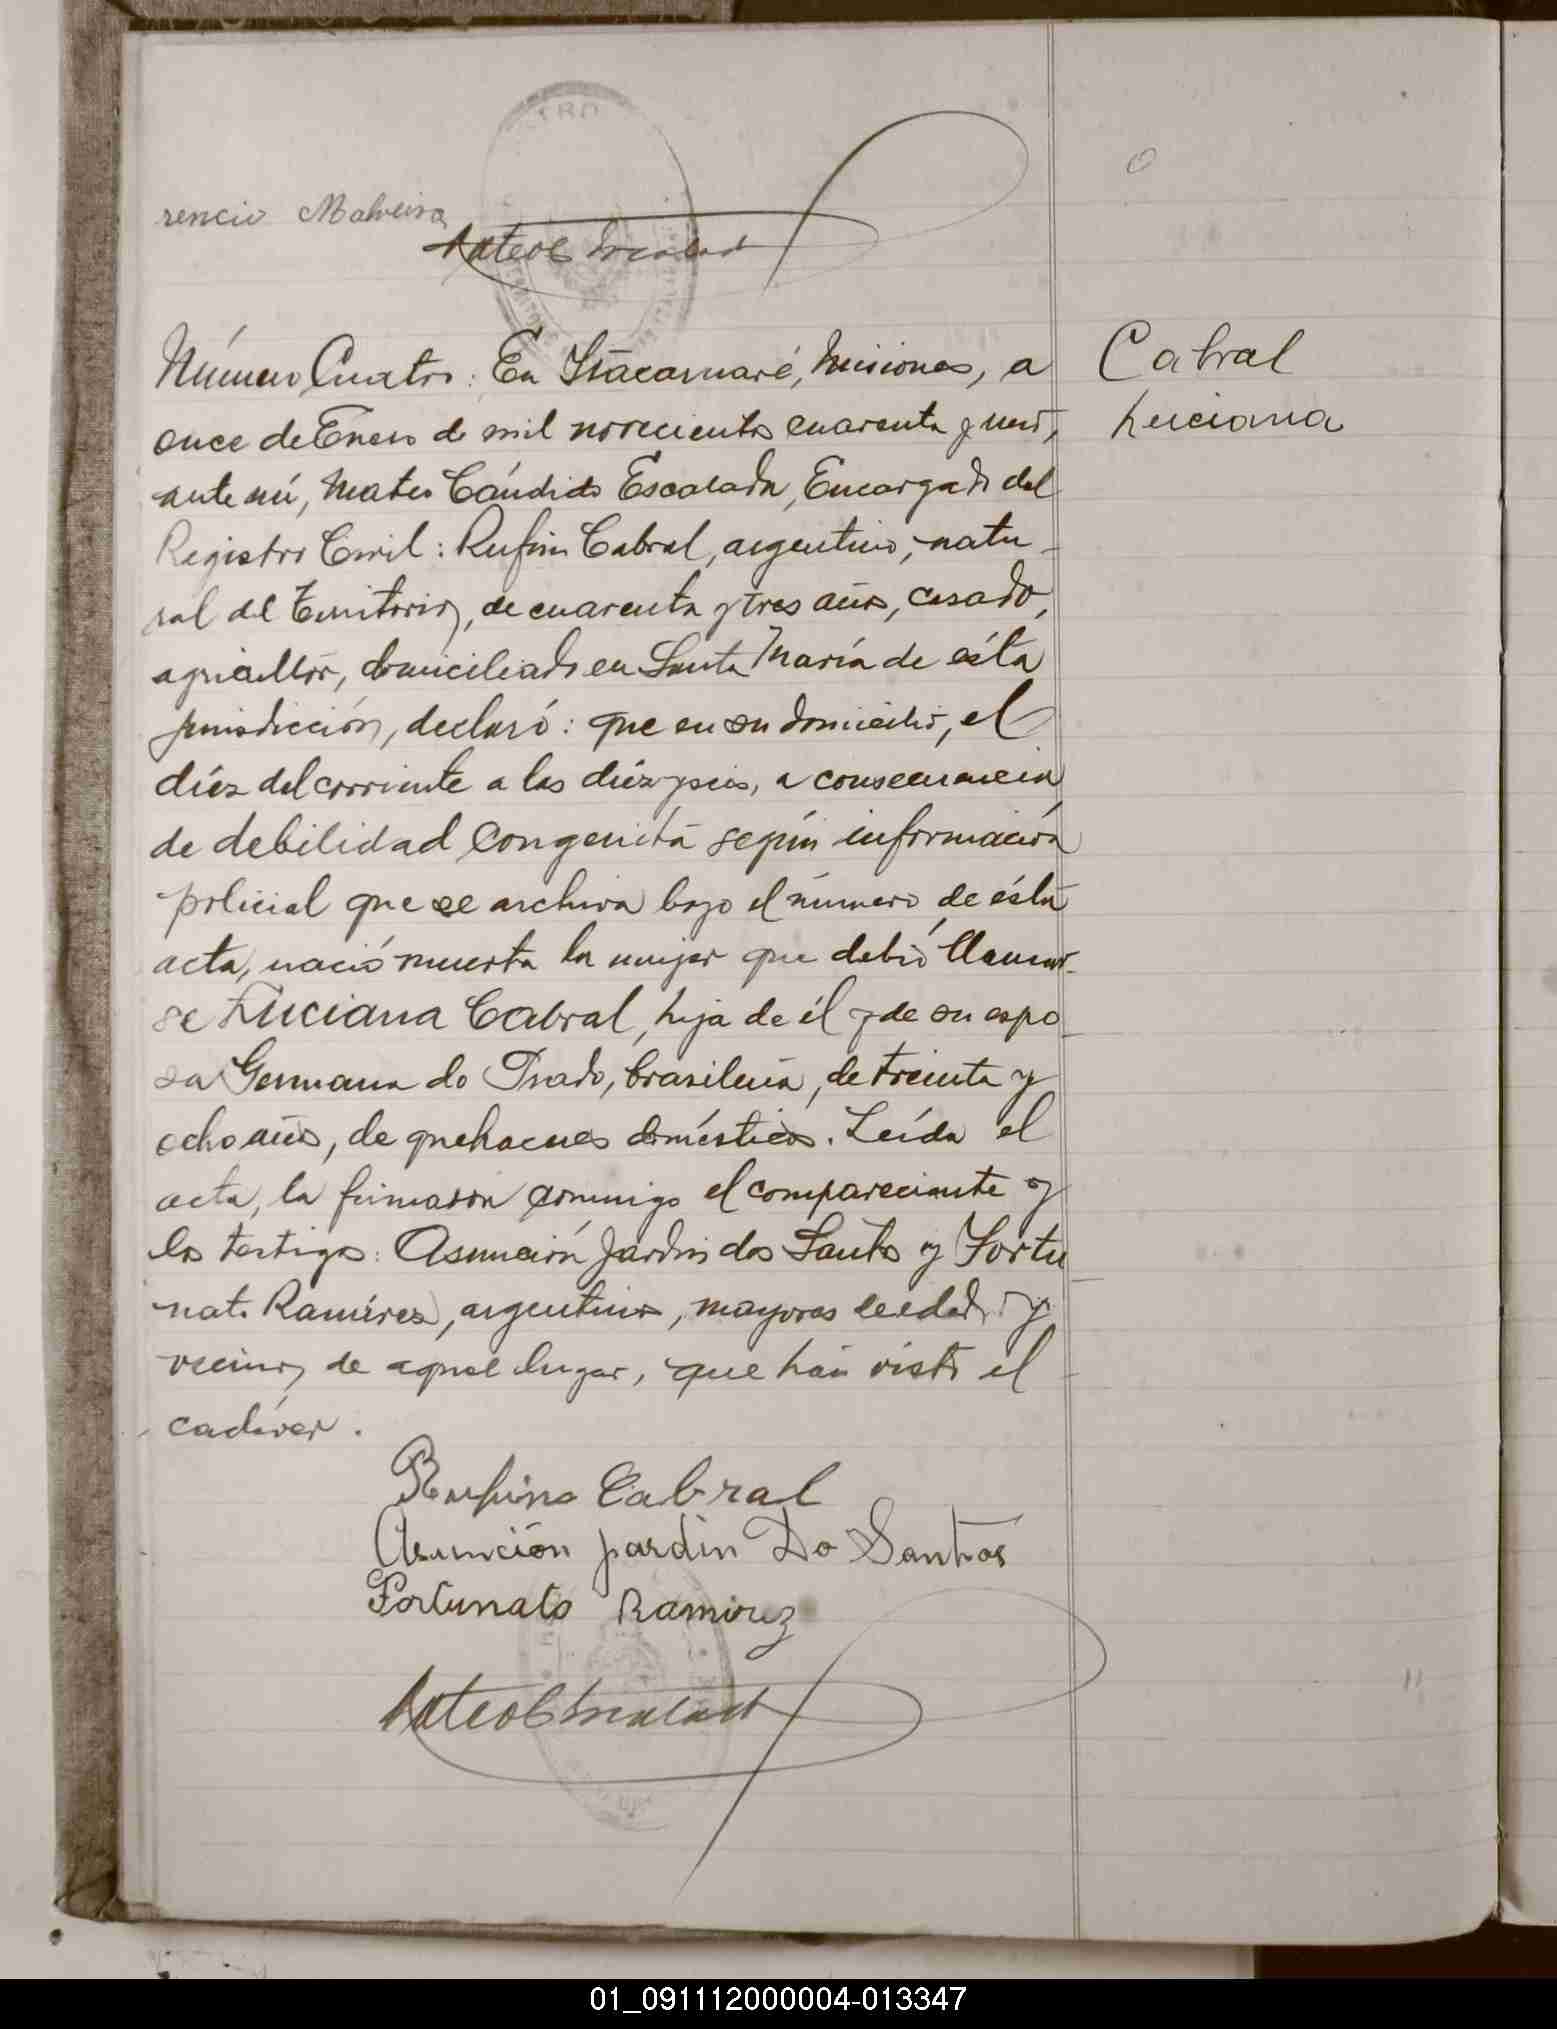 rencio Malveira
Mateo C Escalada
Número Cuatro: En Itacaruaré, Misiones, a
once de Enero de mil novecientos cuarenta y uno,
ante mí, Mateo Cándido Escalada, Encargado del
Registro Civil: Rufino Cabral, argentino, natu-
ral del Territorio, de cuarenta y tres años, casado,
agricultor, domiciliado en Santa María de ésta
jurisdicción, declaró: que en su domicilio, el
diéz del corriente a las diéz y seis, a consecuencia
de debilidad congenita según información
policial que se archiva bajo el número de ésta
acta, nació muerta la mujer que debió llamar-
se Luciana Cabral, hija de él y de su espo-
sa Germana do Prado, brasileña, de treinta y
ocho años, de quehaceres domésticos. Leída el
acta, la firmaron conmigo el compareciente y
los testigos: Asunción Jardin dos Santos y Fortu-
nato Ramírez, argentinos, mayores de edad y
vecinos de aquel lugar, que han visto el
cadáver.
Rufino Cabral
Asunción Jardin Do Santos
Fortunato Ramirez
Mateo C Escalada
Cabral
Luciana
01_091112000004-013347